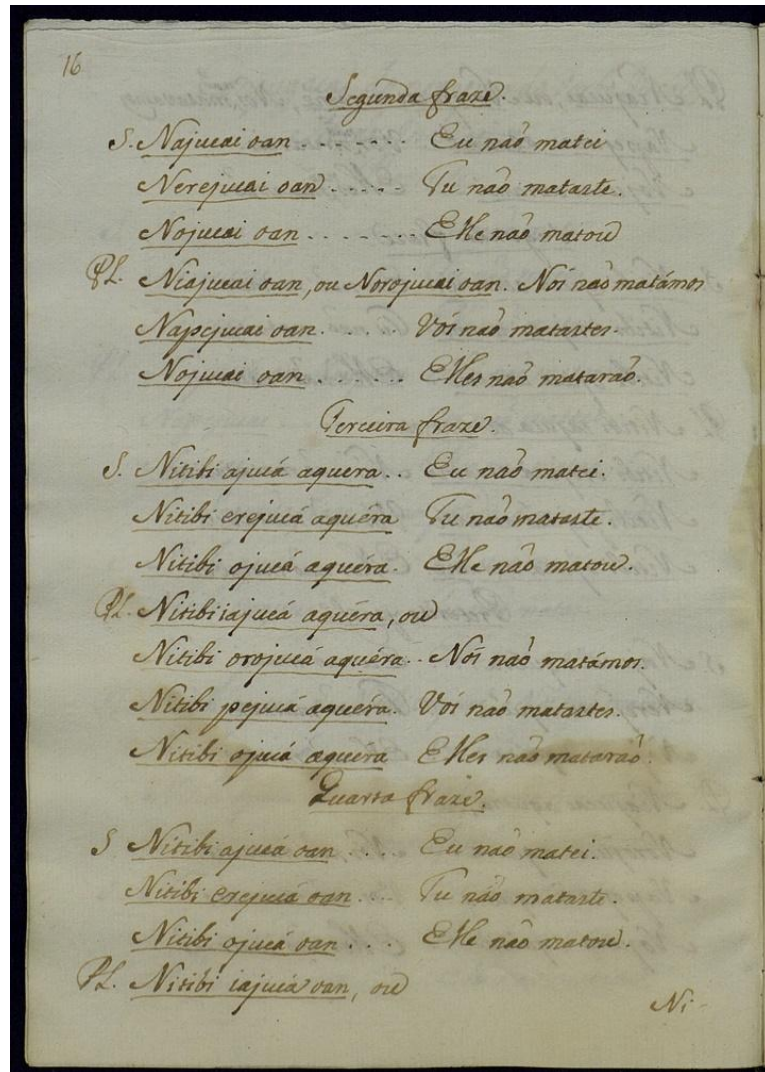 16
Segunda fraze.
S. Najucai oan - - - - - - - Eu naõ matei
Nerejucai oan - - - - - Tu naõ mataste.
Nojucai oan - - - - - - - Elle naõ matou
Pl. Niajucai oan, ou Norojucai oan. Nós naõ matámos
Napejucai oan. . . . . Vós naõ matastes.
Nojucai oan . . . . . . Elles naõ mataraõ.
Terceira fraze.
S. Nitibi ajucá aquera . . Eu naõ matei.
Nitibi erejucá aquéra Tu naõ mataste.
Nitibi ojucá aquéra. Elle naõ matou.
Pl. Nitibi iajucá aquéra, ou
Nitibi orojucá aquéra . . Nós naõ matámos.
Nitibi pejucá aquéra. Vós naõ matastes.
Nitibi ojucá aquera Elles naõ mataraõ.
Quarta fraze.
S Nitibi ajucá oan . . . . Eu naõ matei.
Nitibi erejucá oan . . . Tu naõ mataste.
Nitibi ojucá oan . . . Elle naõ matou.
Pl. Nitibi iajucá oan, ou
Ni-